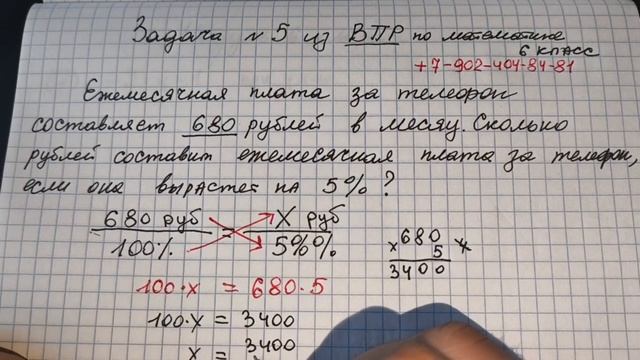 Задача №5 из ВПР по математике
6 класс
+7-902-404-84-81
Ежемесячная плата за телефон
составляет 680 рублей в месяц. Сколько
рублей составит ежемесячная плата за телефон,
если она вырастет на 5%?
680 руб = X руб
100% 5%%
680
× 5
3400
100·x = 680·5
100·x = 3400
x = 3400